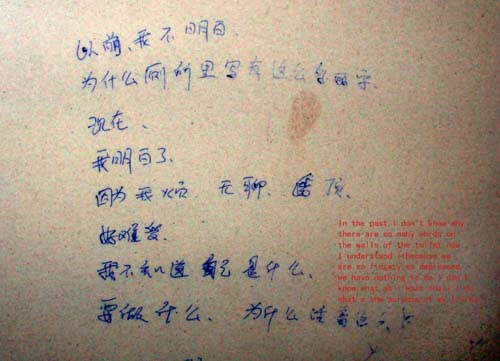 以前、我不明白.
为什么厕所里写有这么多的字.
现在、
我明白了.
因为我烦、无聊、透顶、
好难受.
我不知道自己是什么、
要做什么、为什么活着
In the past I don't know why
there are so many words on
the walls of the toilet now
I understand because we
are so
we have nothing to do I don't
know what